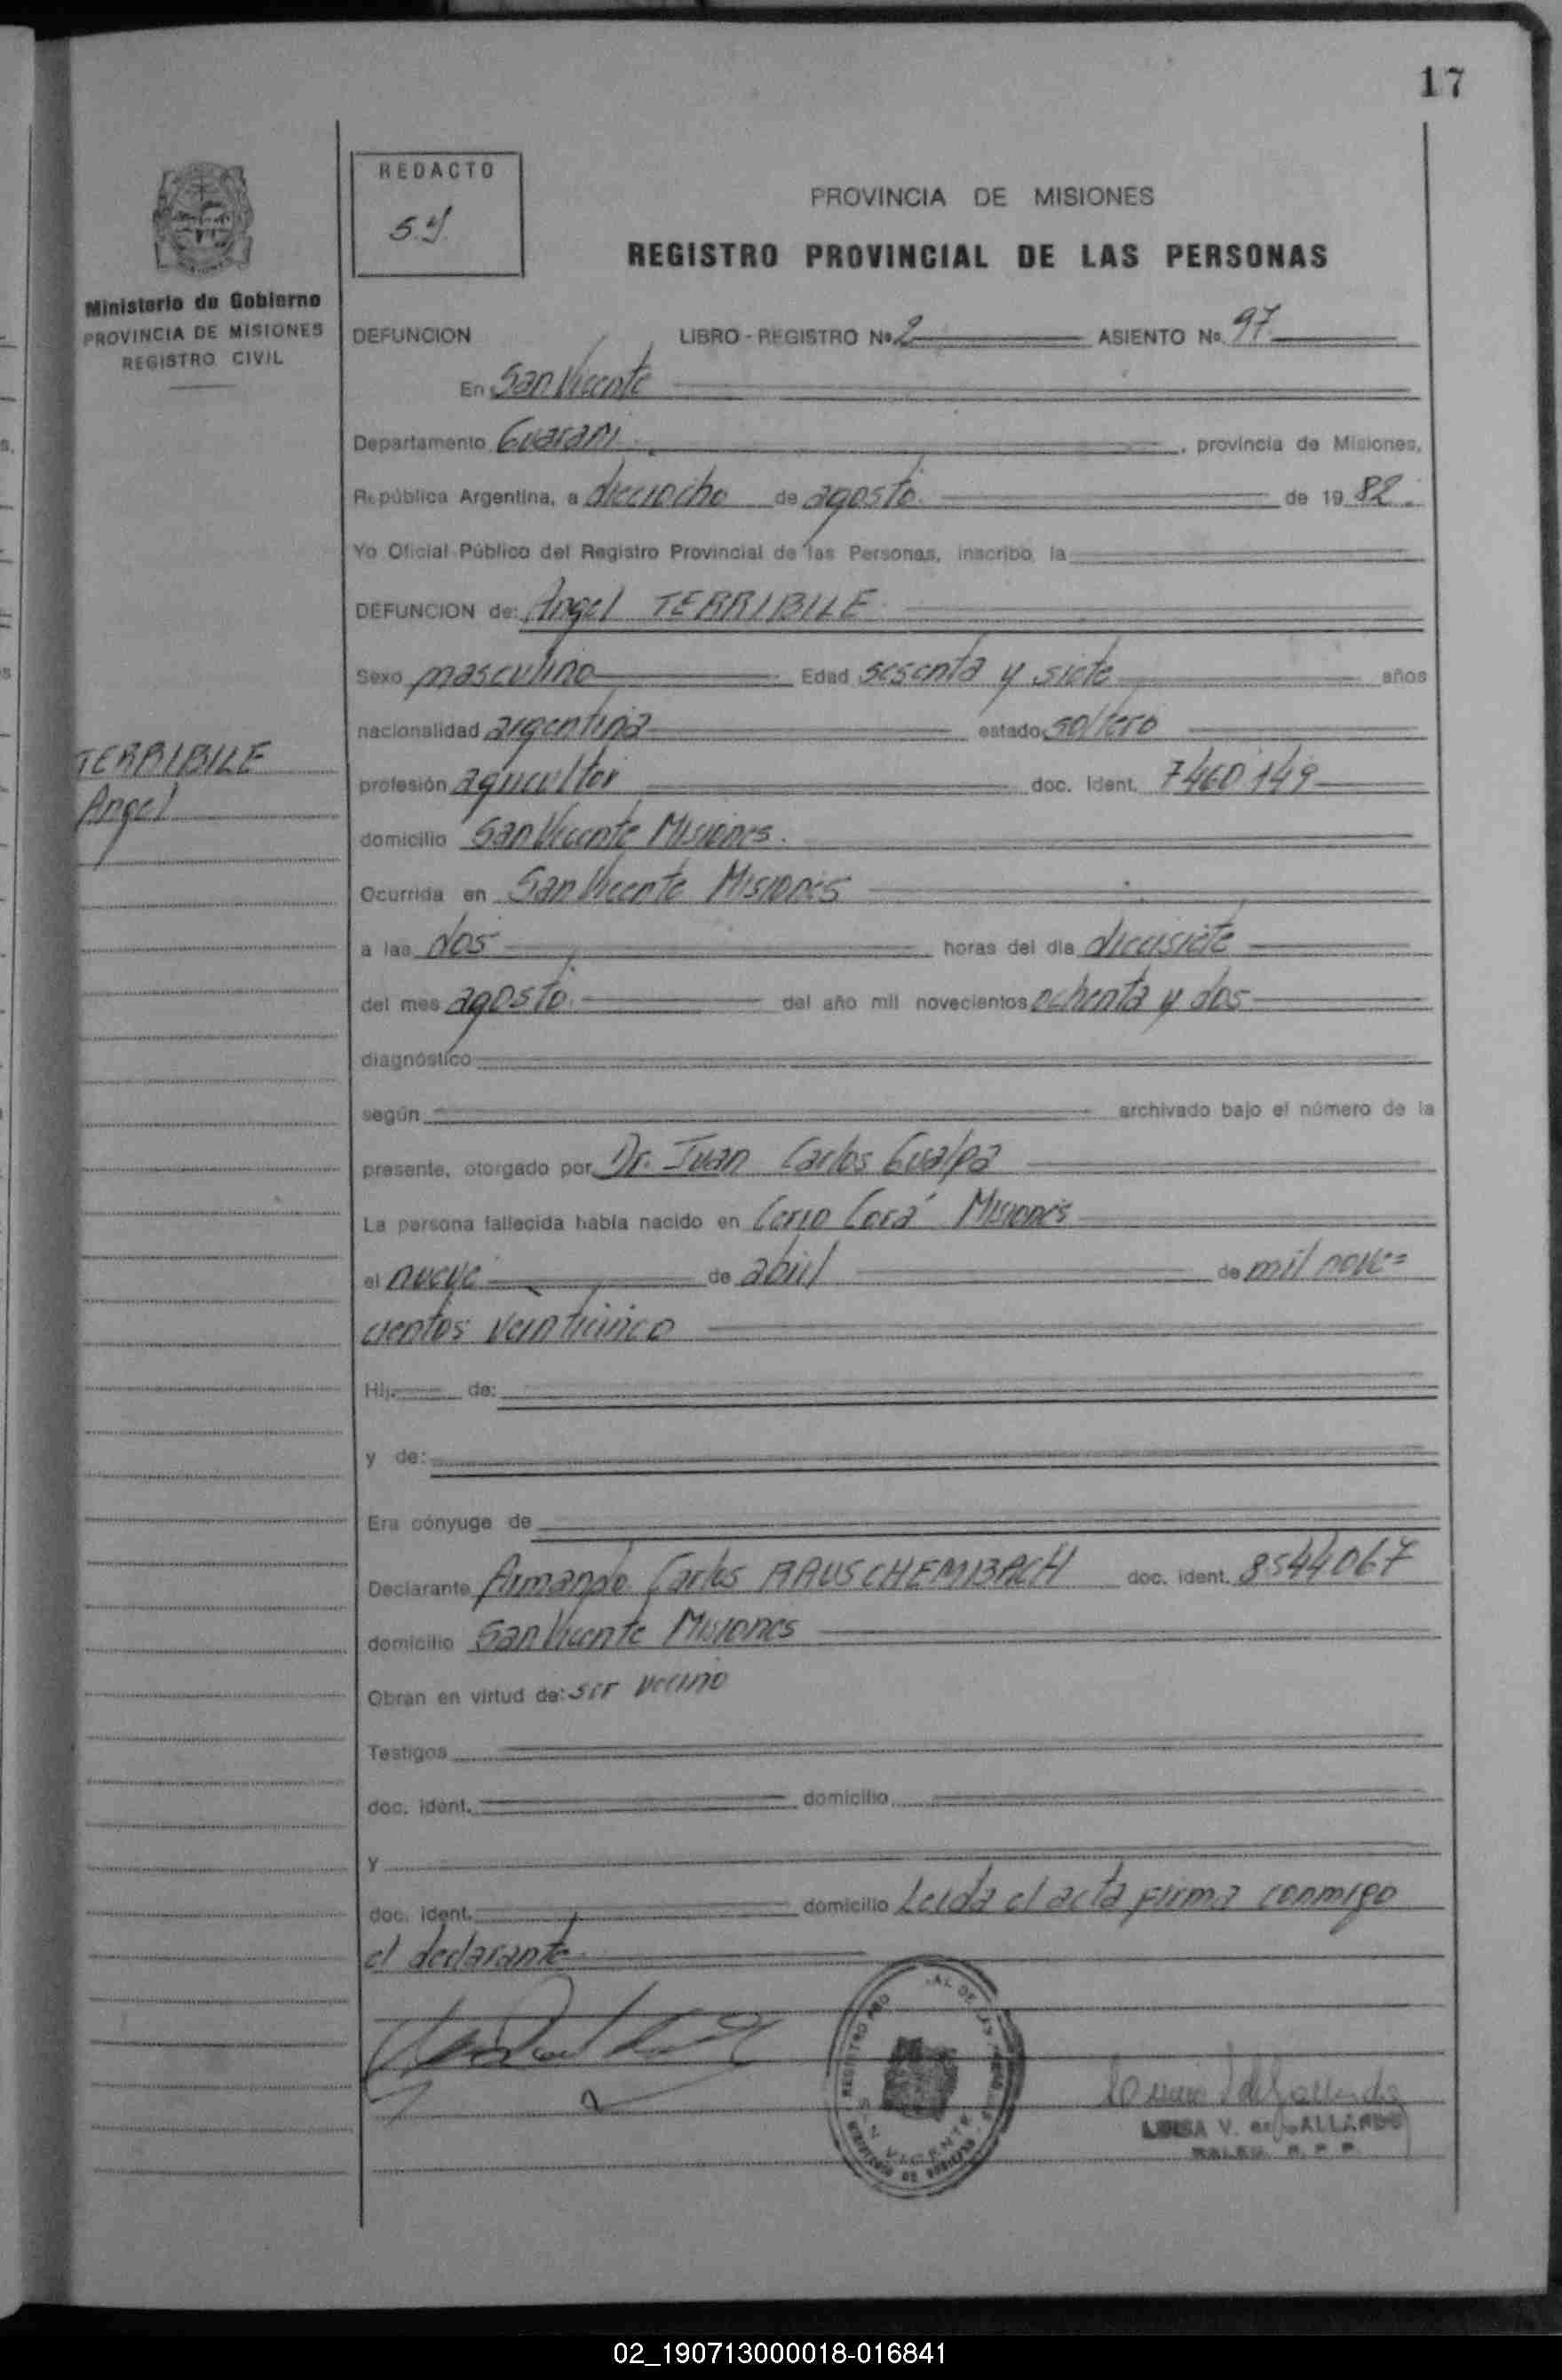 17
REDACTO
PROVINCIA DE MISIONES
REGISTRO PROVINCIAL DE LAS PERSONAS
Ministerio de Gobierno
PROVINCIA DE MISIONES
REGISTRO CIVIL
DEFUNCION LIBRO - REGISTRO No 2 ASIENTO No. 97
En San Vicente
Departamento Guarani, provincia de Misiones,
República Argentina, a dieciocho de agosto de 19 82.
Yo Oficial Público del Registro Provincial de las Personas, inscribo la
DEFUNCION de: Angel TERRIBILE
Sexo masculino Edad sesenta y siete años
nacionalidad argentina estado soltero
TERRIBILE
Angel
profesión agricultor doc. Ident. 7460149
domicilio San Vicente Misiones.
Ocurrida en San Vicente Misiones
a las dos horas del día diecisiete
del mes agosto. del año mil novecientos ochenta y dos
diagnóstico
según archivado bajo el número de la
presente, otorgado por Dr. Juan Carlos Gualpa
La persona fallecida había nacido en Cerro Corá Misiones
el nueve de abril de mil nove=
cientos veinticinco
Hij de:
y de:
Era cónyuge de
Declarante Armando Carlos RAUSCHEMBACH doc. ident. 8544067
domicilio San Vicente Misiones
Obran en virtud de: ser vecino
Testigos
doc. ident. domicilio
Y
doc. ident. domicilio Leida el acta firma conmigo
el declarante
SAN VICENTE
LUISA V. de GALLARDO
02_190713000018-016841